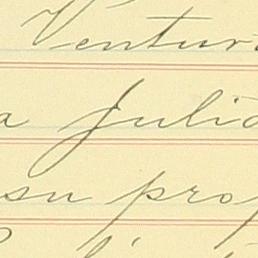 Ventur
a Julia
su pro